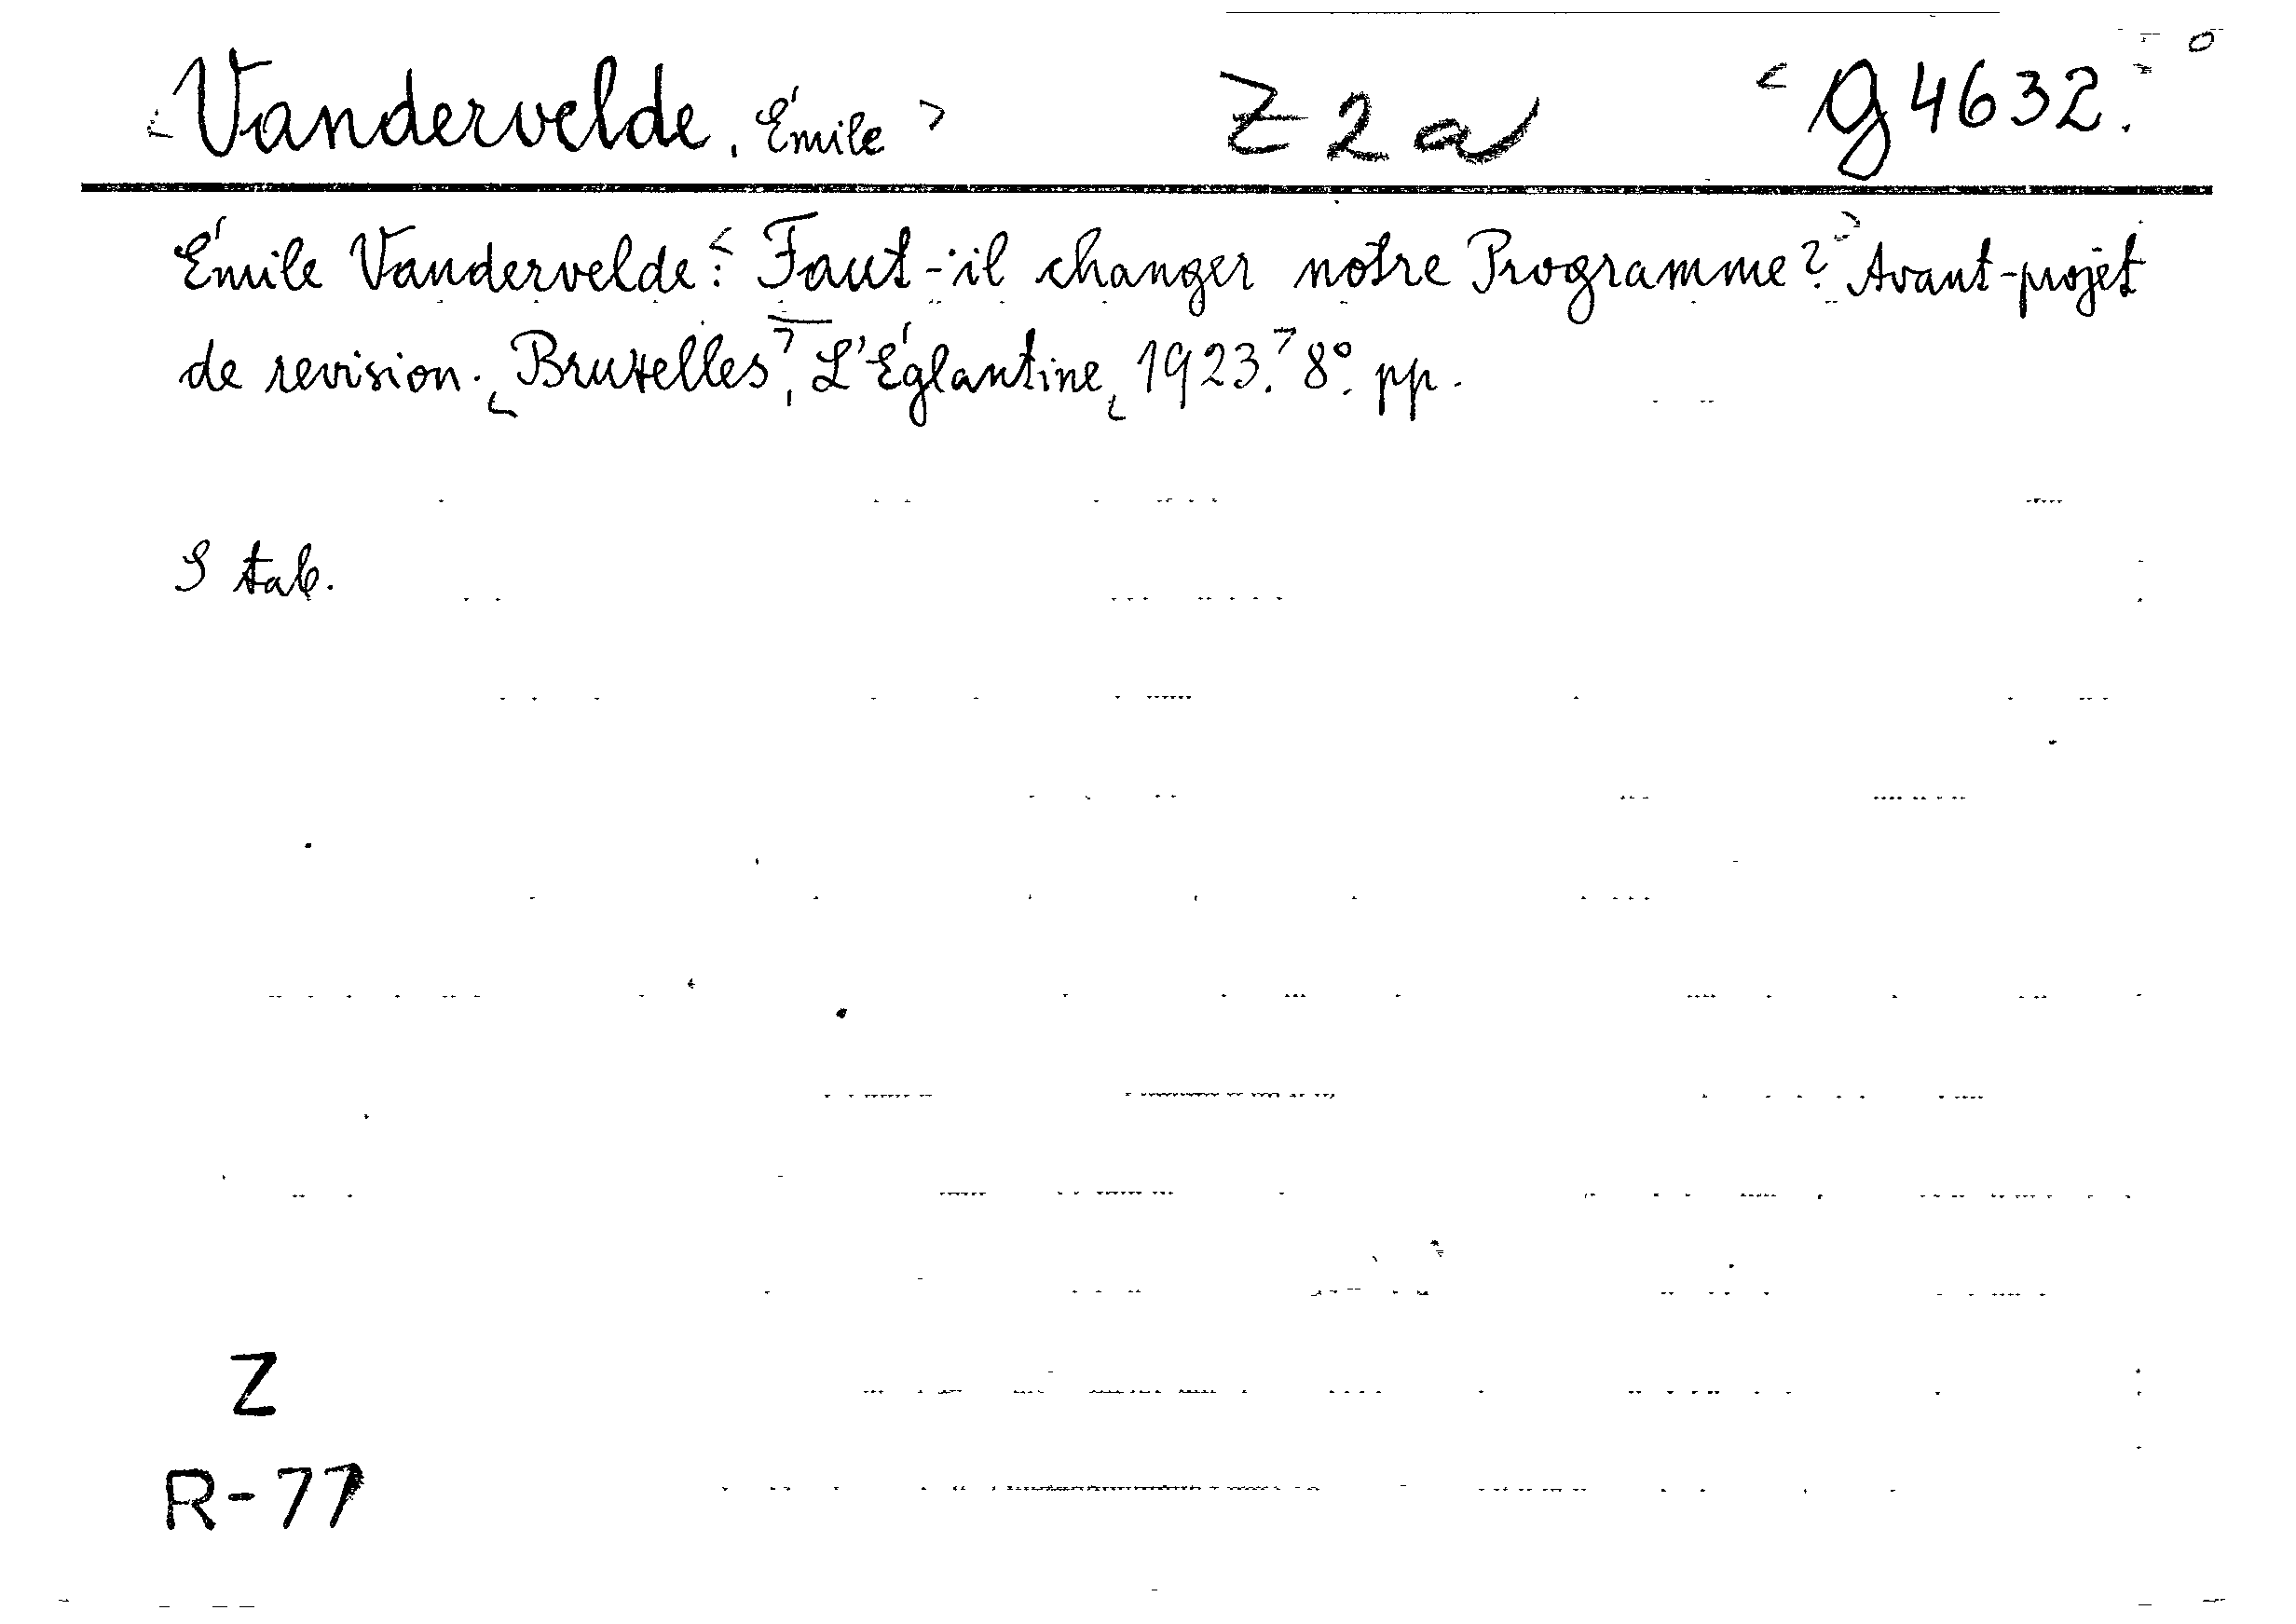 <Vandervelde, Émile> Z2a <g 4632.>
Émile Vandervelde: <Faut-il changer notre Programme?> Avant-projet
de revision. <Bruxelles>, L'Églantine, <1923.> 8º. pp.
S tab.
Z
R-77